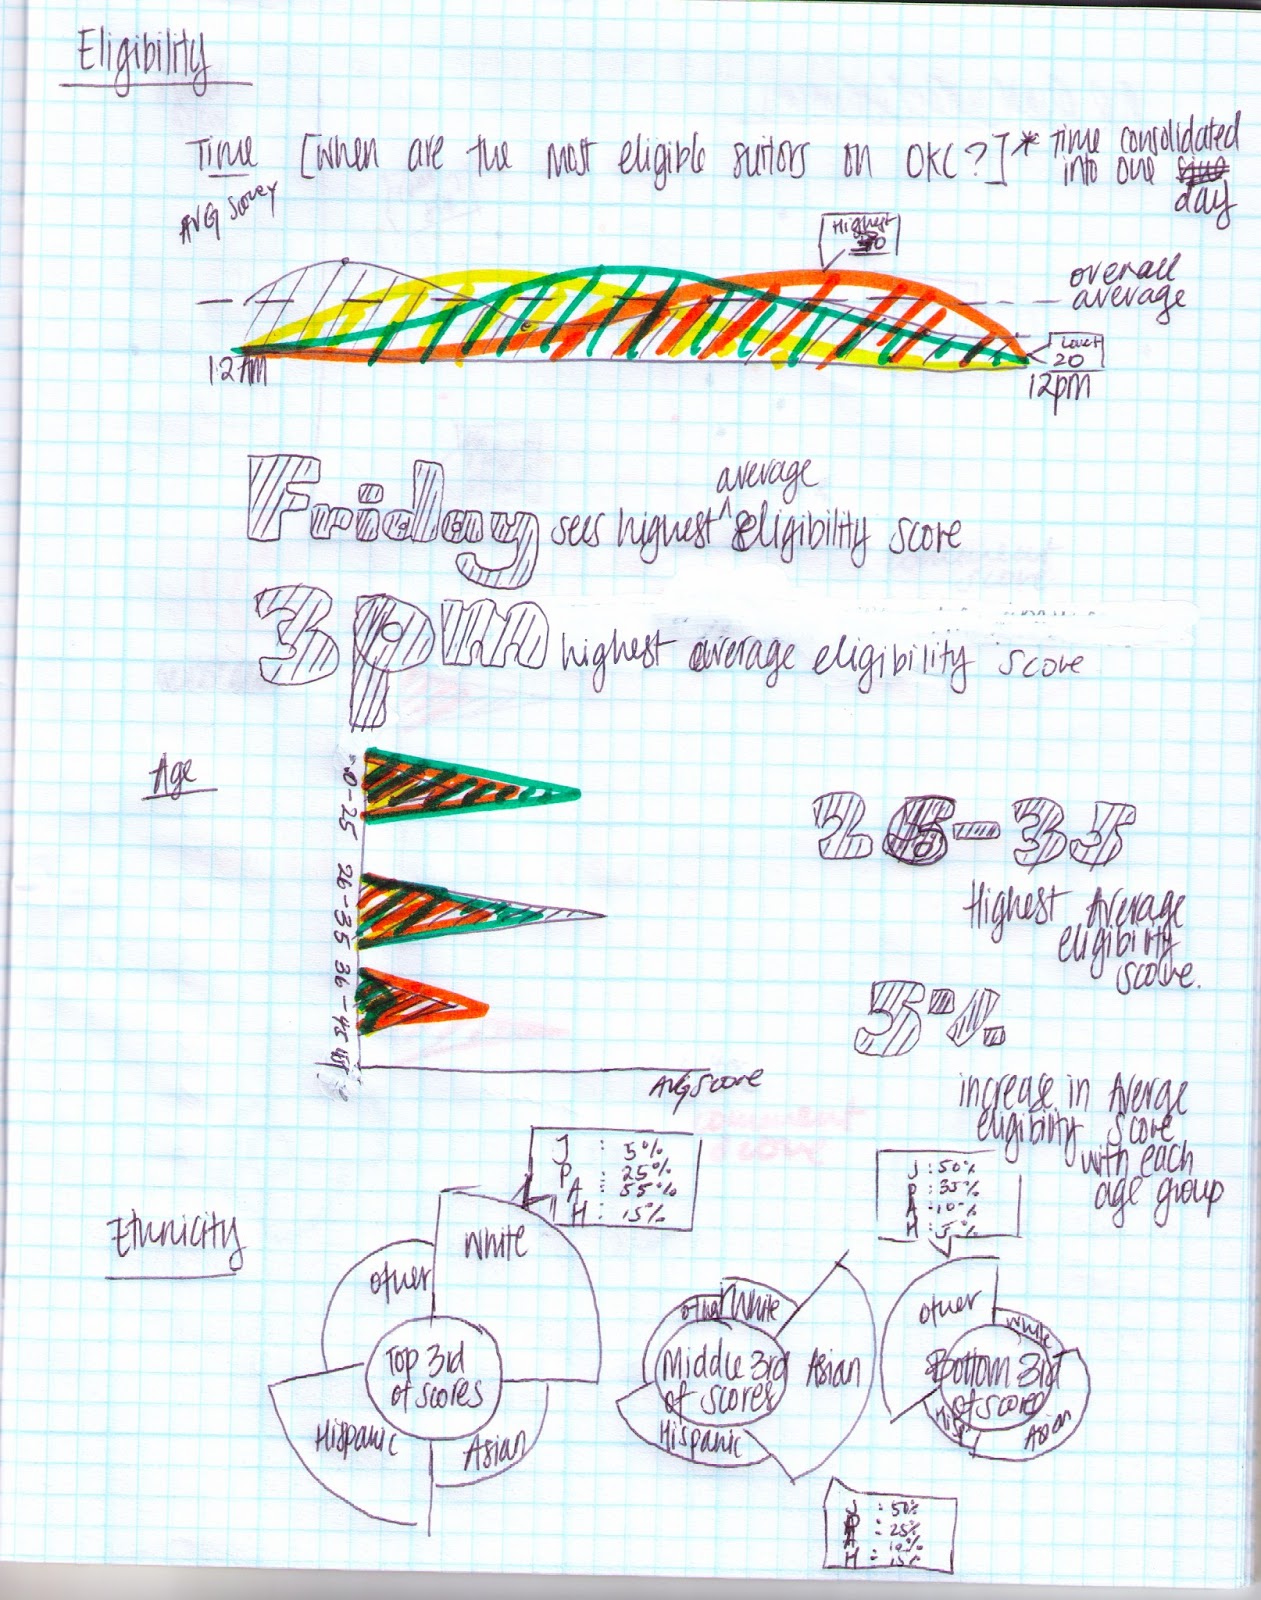 Eligibility
Time [when are the most eligible suitors on OKC?]* time consolidated
into one
day
AVG
Highest
overall
average
Lowest
20
12AM
12pm
average
Friday sees highest ^ eligibility score
3pm highest average eligibility score
Age
0-25
26-35
36-45
Avg score
26-35
Highest Average
eligibility
score.
5%
increase in Average
eligibility score
with each
age group
J : 5%
P : 25%
A : 55%
H : 15%
J : 50%
P : 35%
A : 10%
H : 5%
Ethnicity
White
other
Top 3rd
of scores
Hispanic
Asian
other White
Middle 3rd
of scores
Asian
Hispanic
other
White
Bottom 3rd
of scores
Hisp
Asian
J : 50%
P : 25%
A : 10%
H : 15%